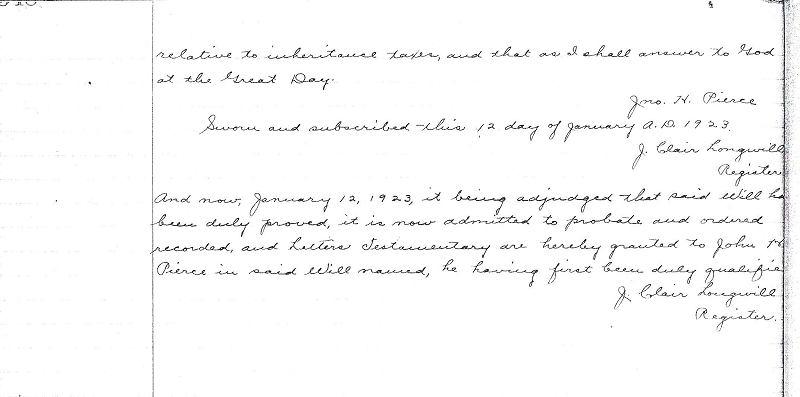 relative to inheritance taxes, and that as I shall answer to God
at the Great Day.
Jno. H. Pierce
Sworn and subscribed this 12 day of January A.D. 1923.
J. Clair Longwill
Register
And now, January 12, 1923, it being adjudged that said Will ha
been duly proved, it is now admitted to probate and ordered
recorded, and Letters Testamentary are hereby granted to John H
Pierce in said Will named, he having first been duly qualifie
J. Clair Longwill
Register.